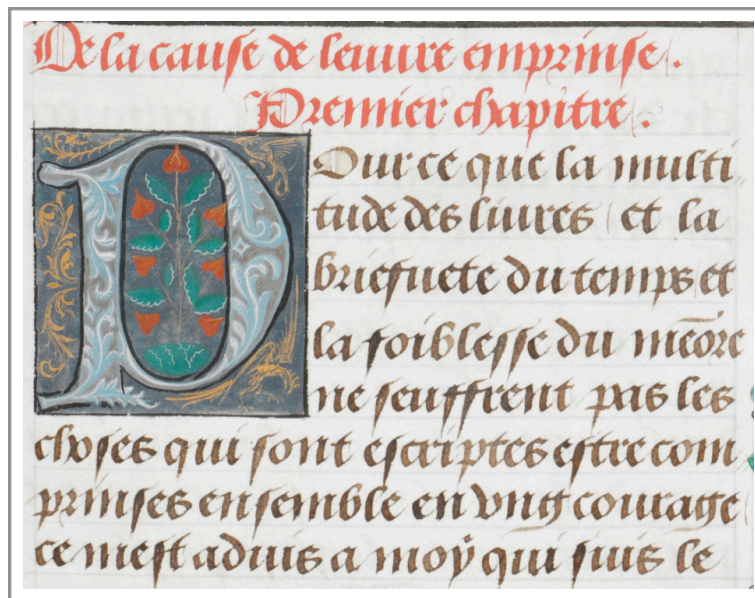 De la cause de leuure emprinse.
Premier chapitre.
Pour ce que la multi
tude des liures et la
briefuete du temps et
la foiblesse du meōre
ne seuffrent pas les
choses qui sont escriptes estre com
prinses ensemble en vng courage
ce mest aduis a moy qui suis le